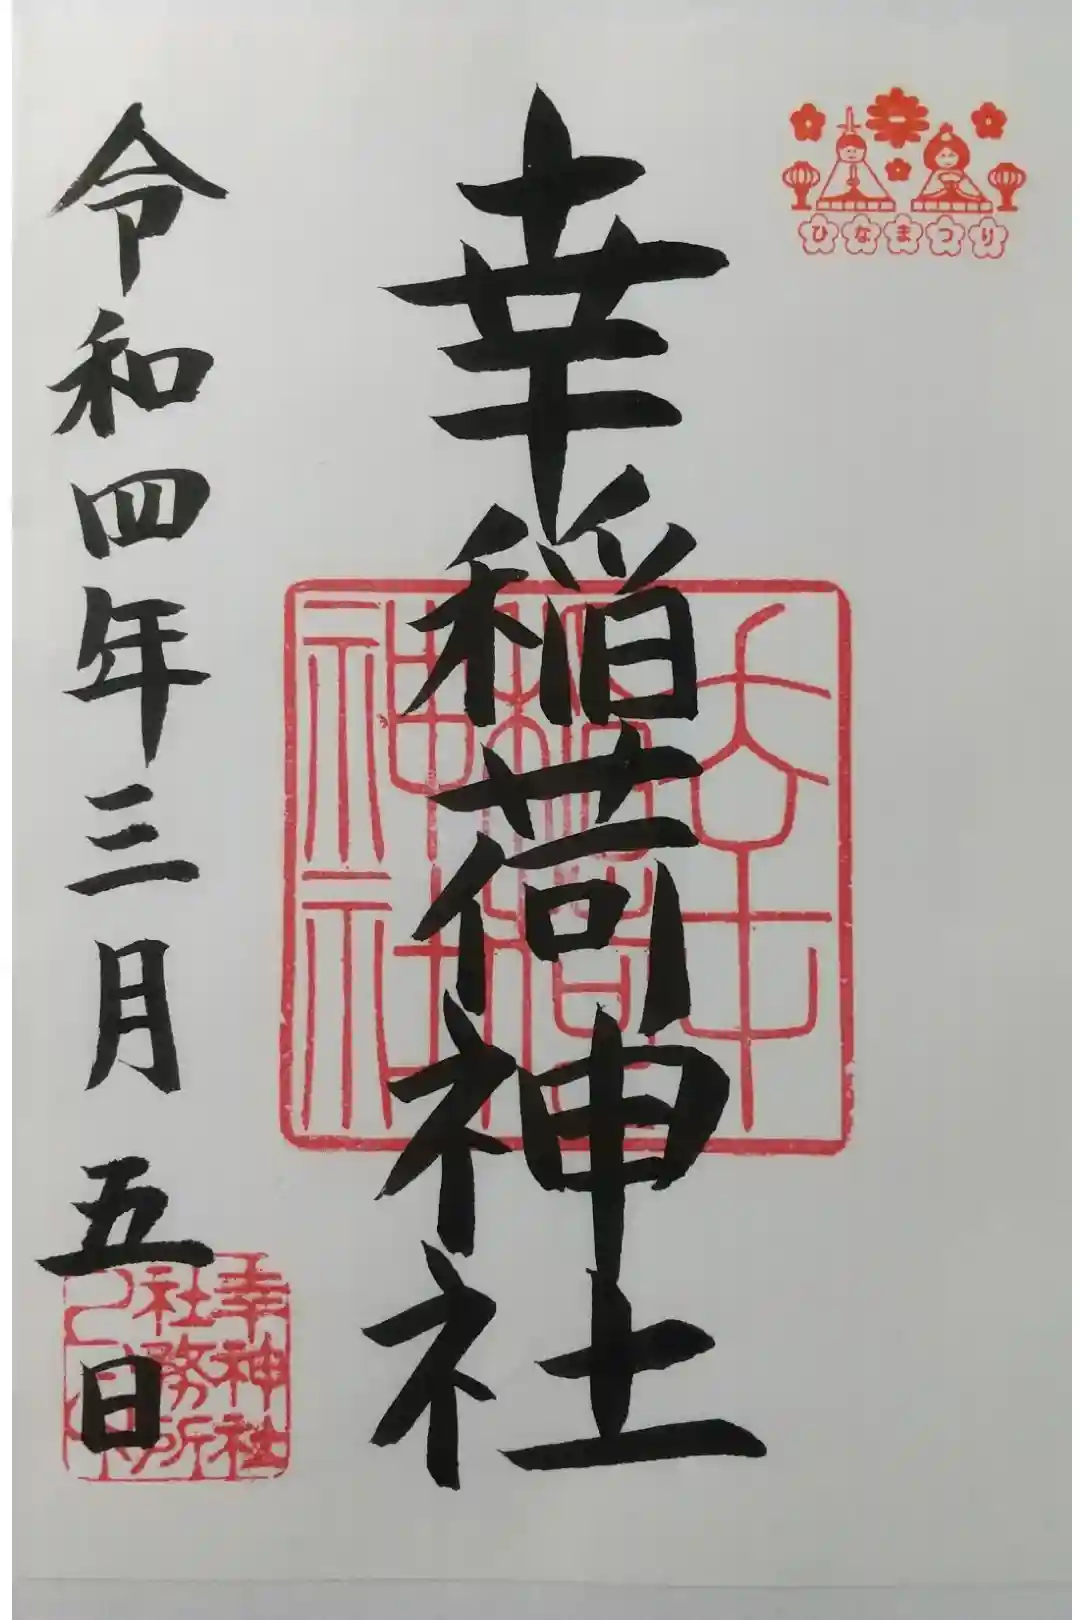 ひなまつり
幸稲荷神社
幸稲荷神社
令和四年三月五日
幸神社
社務所